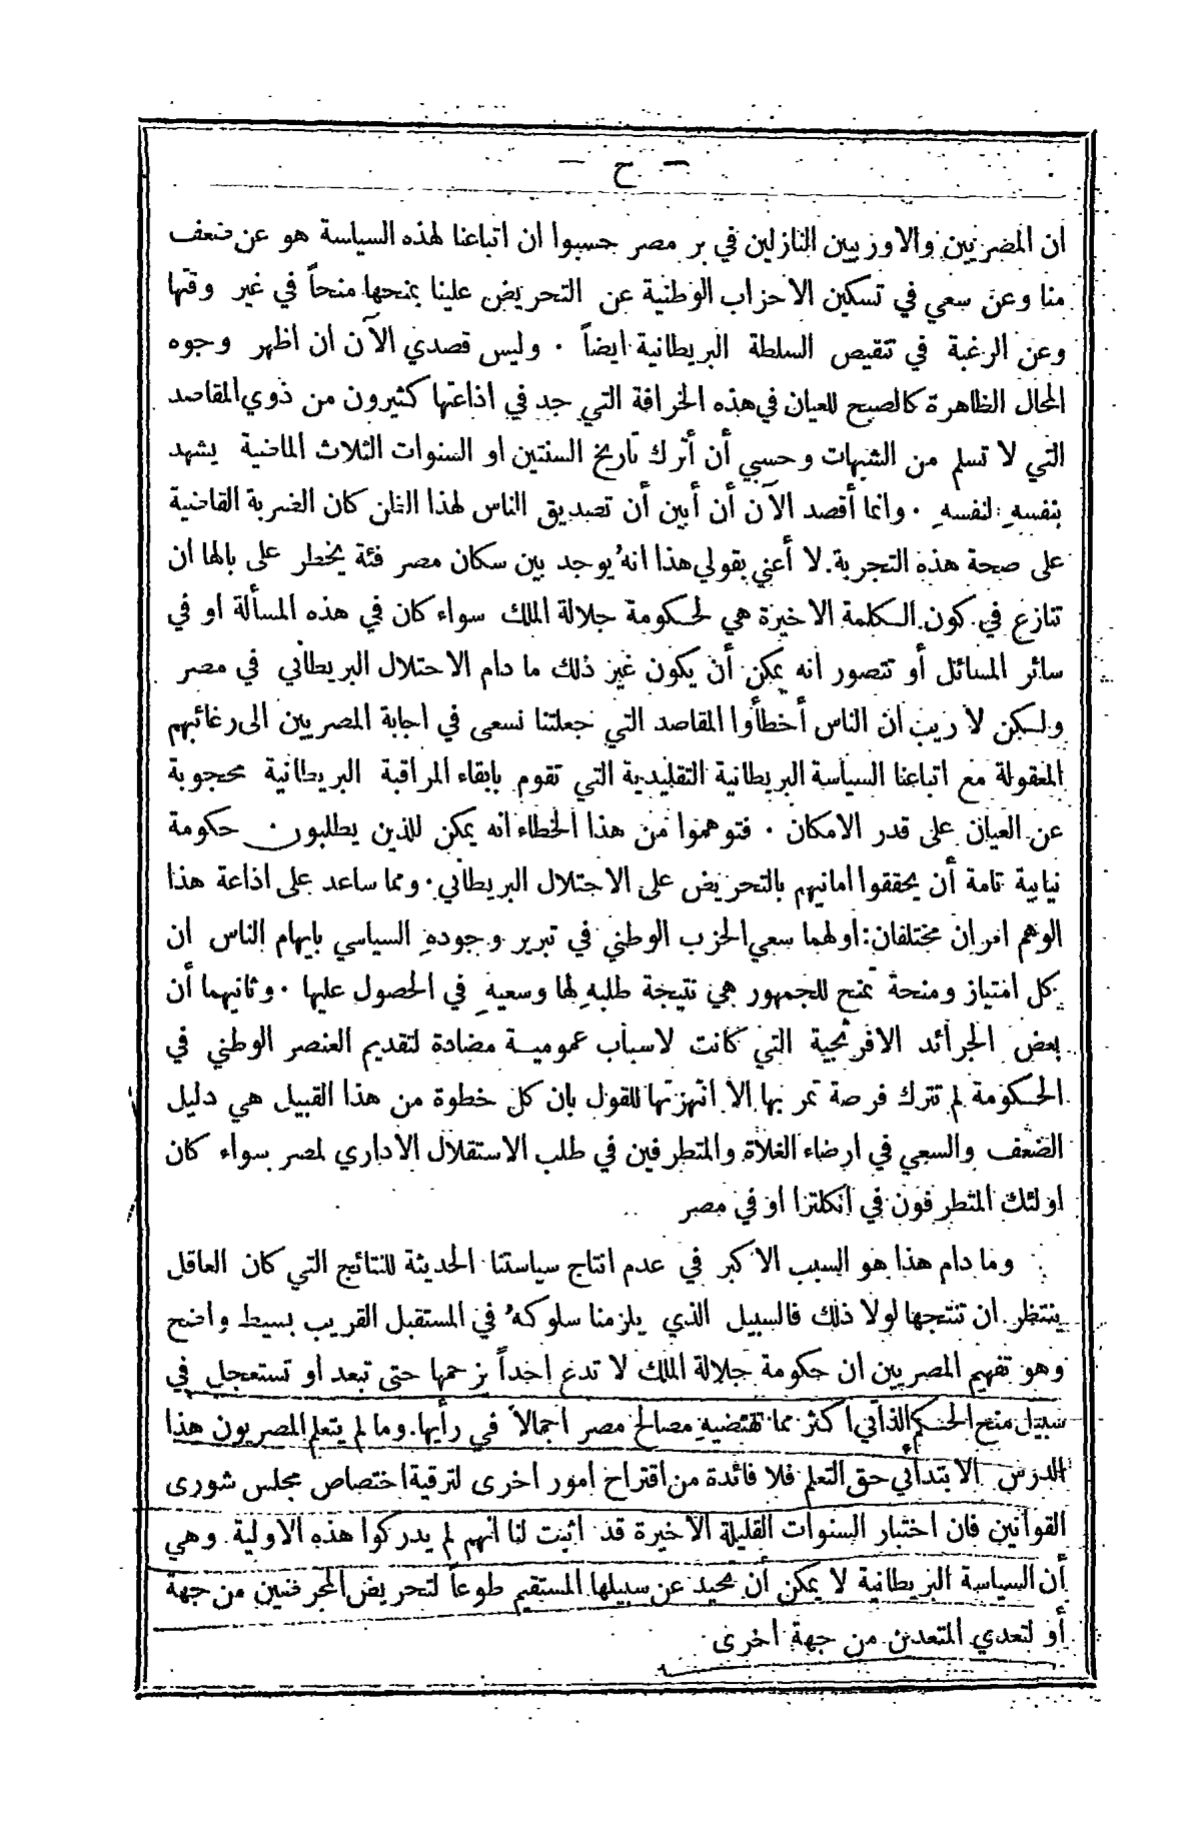 — ح —
ان المصريين والاوربيين النازلين في بر مصر حسبوا ان اتباعنا لهذه السياسة هو عن ضعف
منا وعن سعي في تسكين الاحزاب الوطنية عن التحريض علينا بمنحها منحاً في غير وقتها
وعن الرغبة في تنقيص السلطة البريطانية ايضاً . وليس قصدي الآن ان اظهر وجوه
المحال الظاهرة كالصبح للعيان في هذه الخرافة التي جد في اذاعتها كثيرون من ذوي المقاصد
التي لا تسلم من الشبهات وحسبي أن أترك تاريخ السنتين او السنوات الثلاث الماضية يشهد
بنفسهِ لنفسهِ . وانما أقصد الآن أن أبين أن تصديق الناس لهذا الظن كان الضربة القاضية
على صحة هذه التجربة. لا أعني بقولي هذا انهُ يوجد بين سكان مصر فئة يخطر على بالها ان
تنازع في كون الكلمة الاخيرة هي لحكومة جلالة الملك سواء كان في هذه المسألة او في
سائر المسائل أو تتصور انه يمكن أن يكون غير ذلك ما دام الاحتلال البريطاني في مصر
ولكن لا ريب ان الناس أخطأوا المقاصد التي جعلتنا نسعى في اجابة المصريين الى رغائبهم
المعقولة مع اتباعنا السياسة البريطانية التقليدية التي تقوم بابقاء المراقبة البريطانية محجوبة
عن العيان على قدر الامكان . فتوهموا من هذا الخطاء انه يمكن للذين يطلبون حكومة
نيابية تامة أن يحققوا امانيهم بالتحريض على الاحتلال البريطاني . ومما ساعد على اذاعة هذا
الوهم امران مختلفان: اولهما سعي الحزب الوطني في تبرير وجودهِ السياسي بايهام الناس ان
كل امتياز ومنحة تمنح للجمهور هي نتيجة طلبهِ لها وسعيهِ في الحصول عليها . وثانيهما أن
بعض الجرائد الافرنجية التي كانت لاسباب عمومية مضادة لتقديم العنصر الوطني في
الحكومة لم تترك فرصة تمر بها الا انتهزتها للقول بان كل خطوة من هذا القبيل هي دليل
الضعف والسعي في ارضاء الغلاة والمتطرفين في طلب الاستقلال الاداري لمصر سواء كان
اولئك المتطرفون في انكلترا او في مصر
وما دام هذا هو السبب الاكبر في عدم انتاج سياستنا الحديثة للنتائج التي كان العاقل
ينتظر ان تنتجها لولا ذلك فالسبيل الذي يلزمنا سلوكهُ في المستقبل القريب بسيط واضح
وهو تفهيم المصريين ان حكومة جلالة الملك لا تدع احداً يزحمها حتى تبعد او تستعجل في
سبيل منح الحكم الذاتي اكثر مما تقتضيهِ مصالح مصر اجمالاً في رأيها. وما لم يتعلم المصريون هذا
الدرس الابتدائي حق التعلم فلا فائدة من اقتراح امور اخرى لترقية اختصاص مجلس شورى
القوانين فان اختبار السنوات القليلة الاخيرة قد اثبت لنا انهم لم يدركوا هذه الاولية وهي
أن السياسة البريطانية لا يمكن أن تحيد عن سبيلها المستقيم طوعاً لتحريض المحرضين من جهة
أو لتعدي المتعدين من جهة اخرى